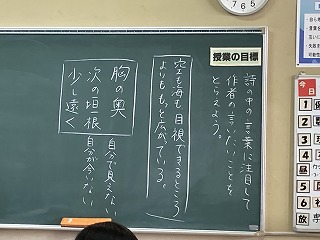 授業の目標
詩の中の言葉に注目して
作者の言いたいことを
とらえよう。
空も海も目視できるところ
よりももっと広がっている。
胸の奥
次の垣根
少し遠く
自分で見えない
自分が今いない
7
6
5
今日
1
2
3
4
昼
5
6